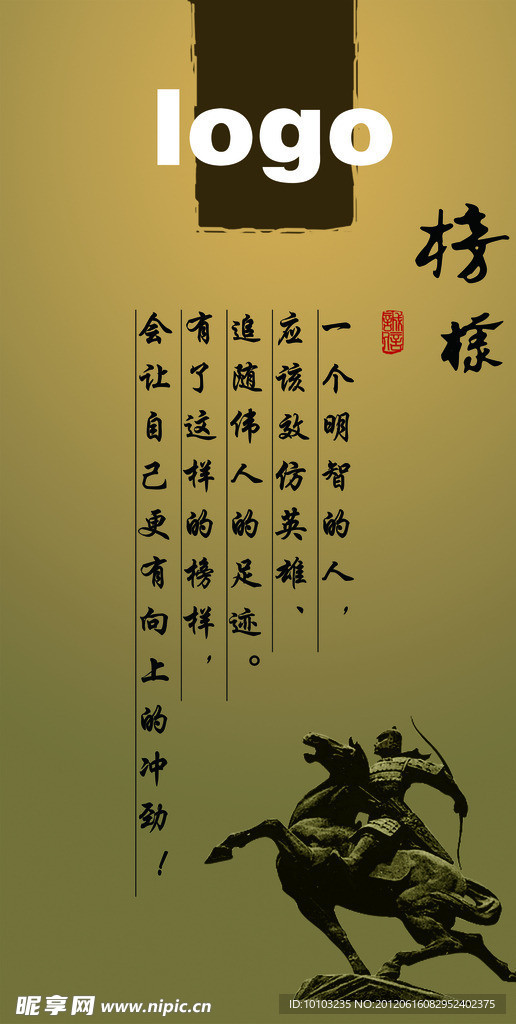 logo
榜樣
誠信
一个明智的人，
应该效仿英雄、
追随伟人的足迹。
有了这样的榜样，
会让自己更有向上的冲劲！
昵享网 www.nipic.cn
ID:10103235 NO:20120616082952402375